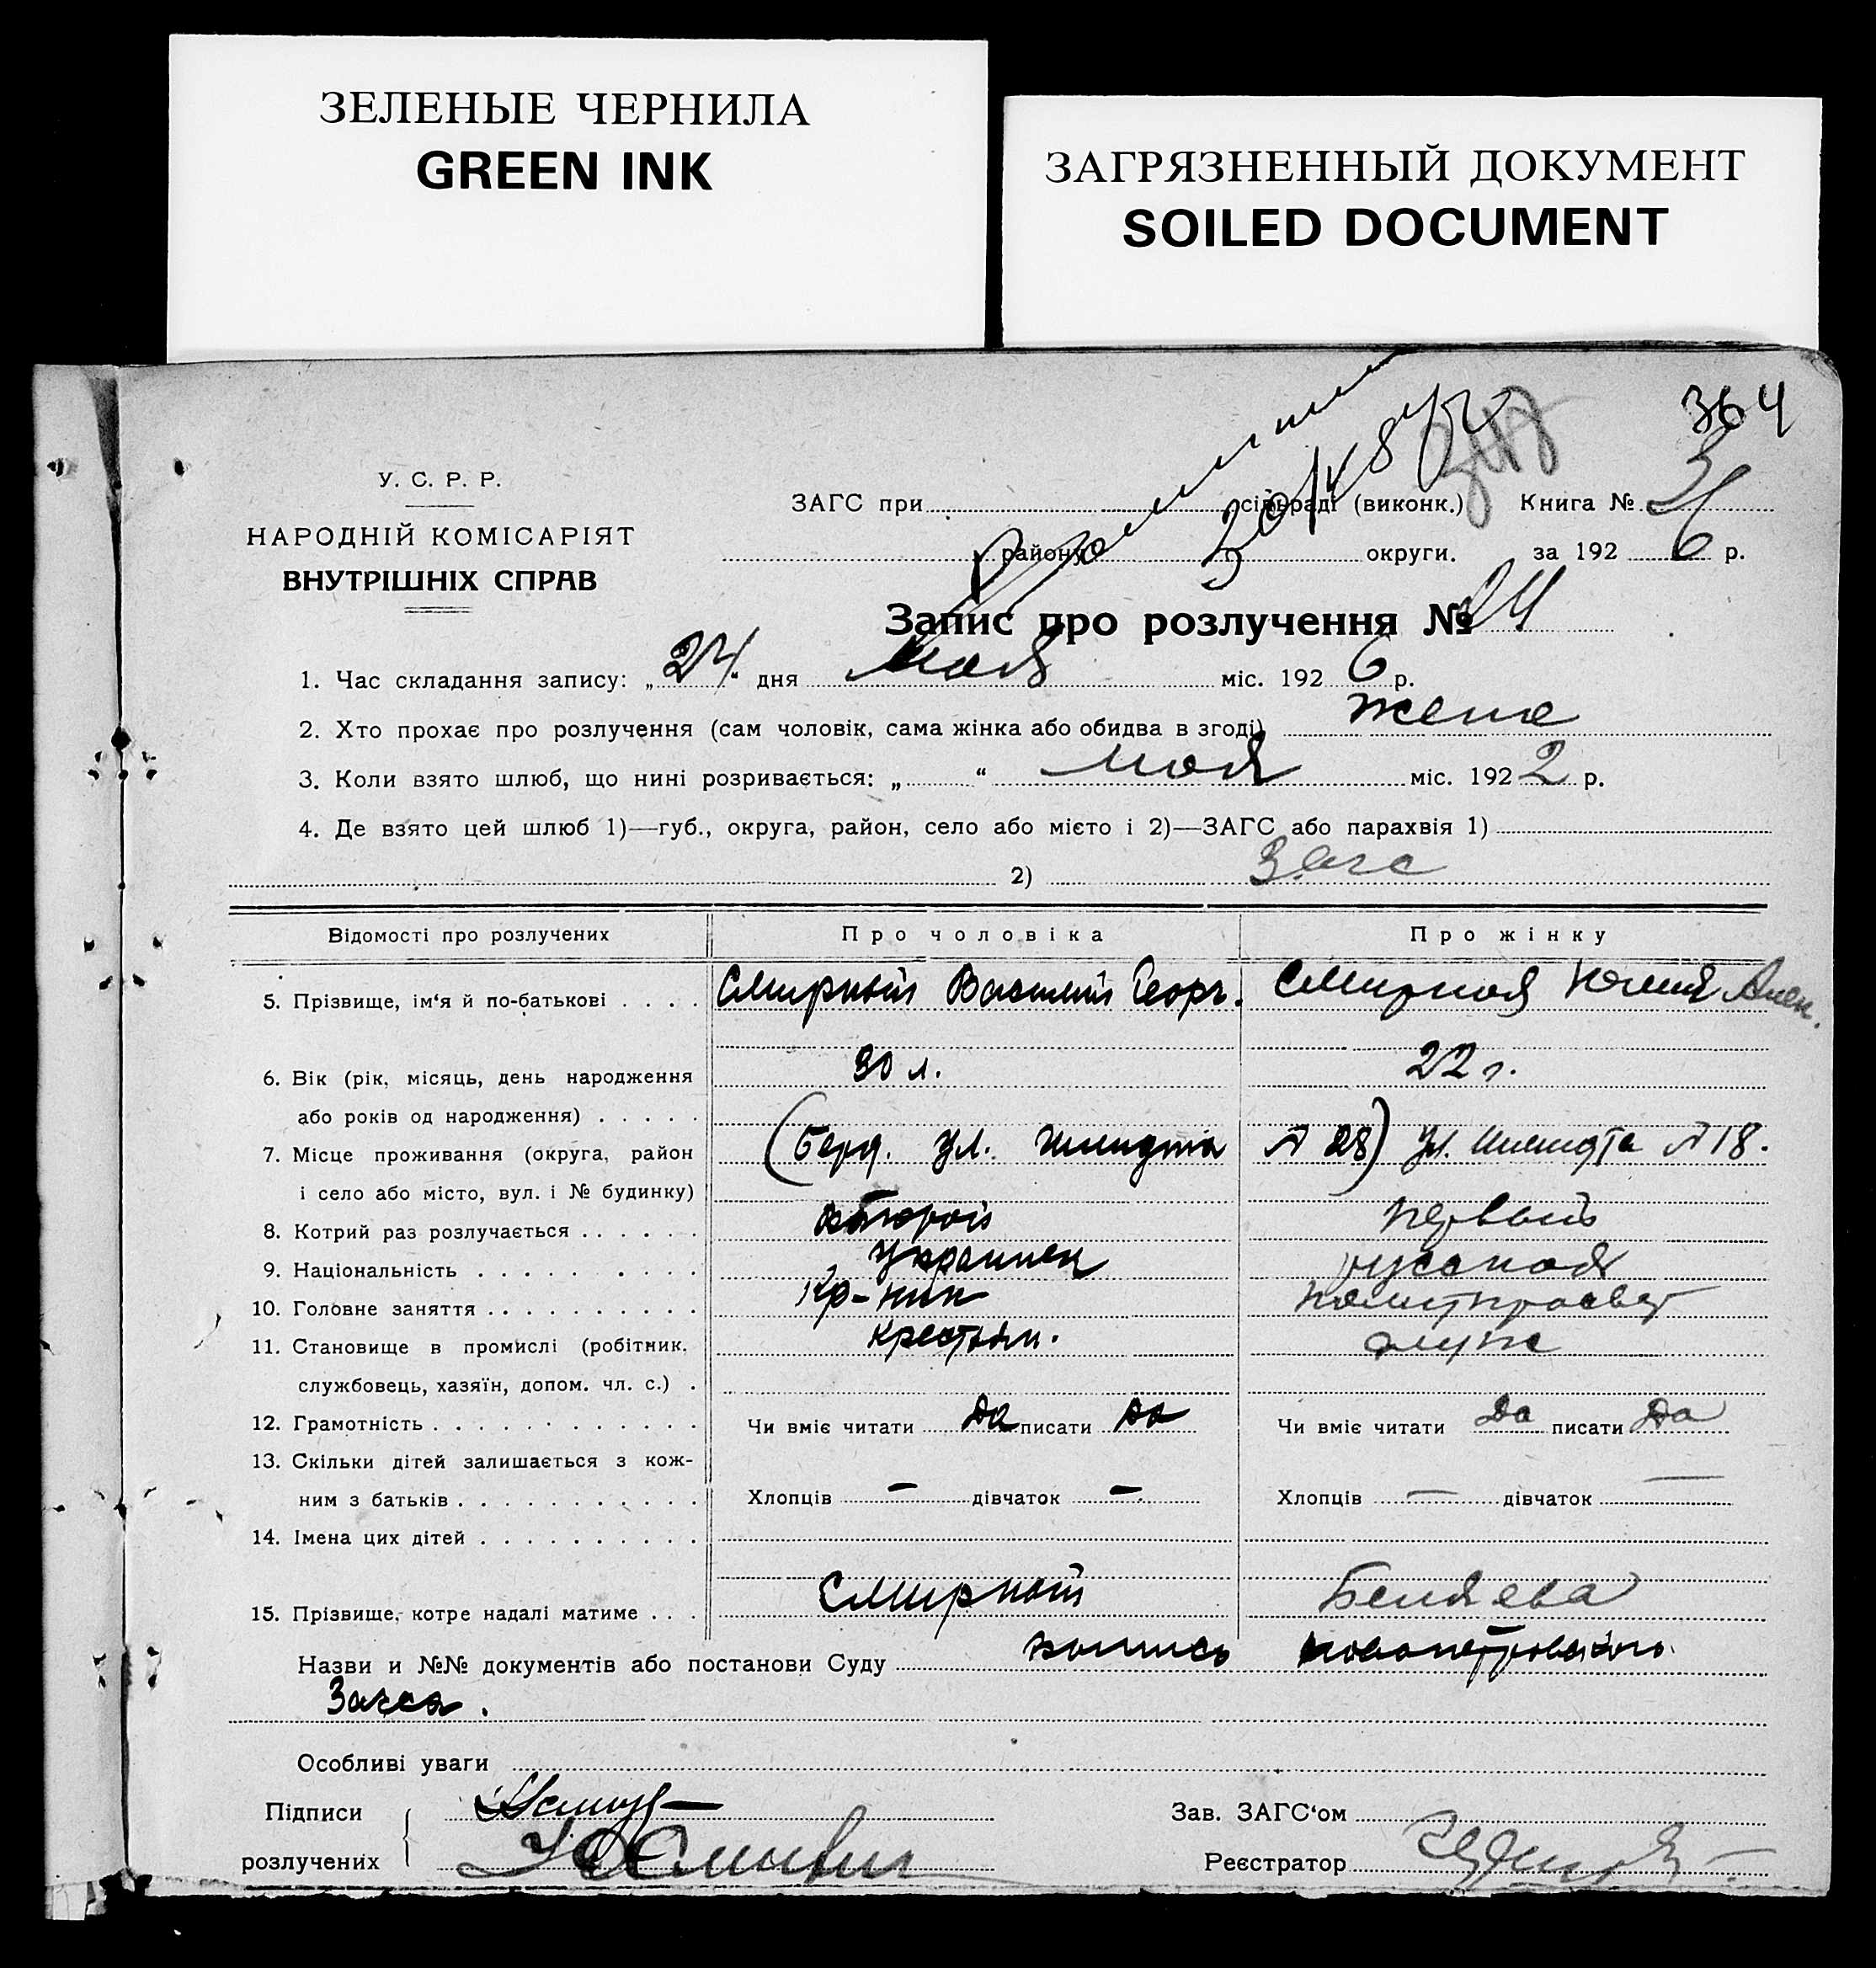 ЗЕЛЕНЫЕ ЧЕРНИЛА
GREEN INK
ЗАГРЯЗНЕННЫЙ ДОКУМЕНТ
SOILED DOCUMENT
364
У. С. Р. Р.
НАРОДНІЙ КОМІСАРІЯТ
ВНУТРІШНІХ СПРАВ
ЗАГС при сільраді (виконк.) Книга № 3
району округи. за 192 6 р.
Запис про розлучення № 24
1. Час складання запису: „ 24 " дня мая міс. 192 6 р.
2. Хто прохає про розлучення (сам чоловік, сама жінка або обидва в згоді) жена
3. Коли взято шлюб, що нині розривається: „ “ мая міс. 192 2 р.
4. Де взято цей шлюб 1)—губ., округа, район, село або мієто і 2)—ЗАГС або парахвія 1)
2) Загс
Відомості про розлучених Про чоловіка Про жінку
5. Прізвище, ім‘я й по-батькові . . . . Смирный Василий Георг. Смирная Юлия Алек.
6. Вік (рік, місяць, день народження 30 л. 22 г.
або років од народження) . . . . .
7. Місце проживання (округа, район (Берд. ул. Шмидта № 28) ул. Шмидта № 18.
і село або місто, вул. і № будинку)
8. Котрий раз розлучається . . . . . . второй первый
9. Національність . . . . . . . . украинец русская
10. Головне заняття . . . . . . . . . . Кр-ник политпросвет
11. Становище в промислі (робітник, крестьян. служ
службовець, хазяїн, допом. чл. с.) .
12. Грамотність . . . . . . . . . . . . Чи вміє читати да писати да Чи вміє читати да писати да
13. Скільки дітей залишається з кож-
ним з батьків . . . . . . . . . . . Хлопців — дівчаток — Хлопців — дівчаток —
14. Імена цих дітей . . . . . . . . . .
15. Прізвище, котре надалі матиме . . . Смирный Беляева
Назви и №№ документів або постанови Суду Новопетровского
Загса.
Особливі уваги
Підписи
розлучених
Зав. ЗАГС‘ом
Реєстратор